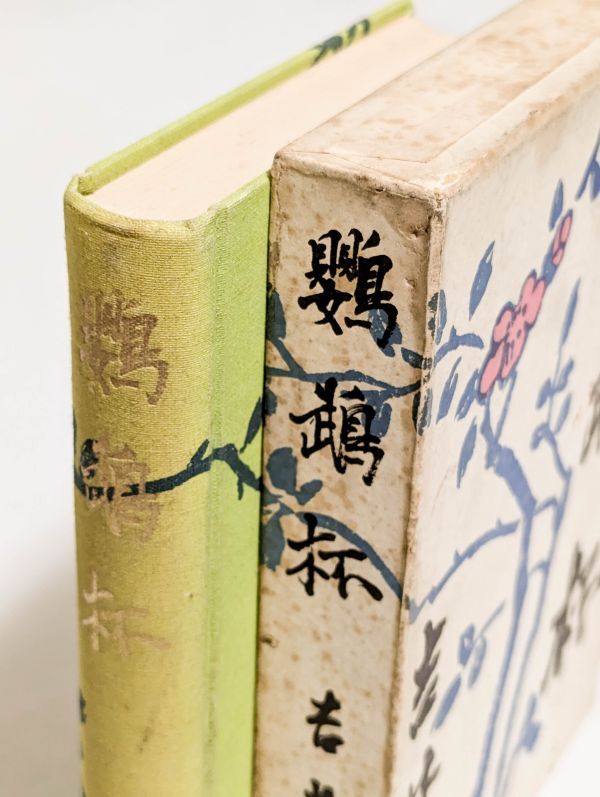 鸚鵡杯
鸚鵡杯 吉
杯
吉